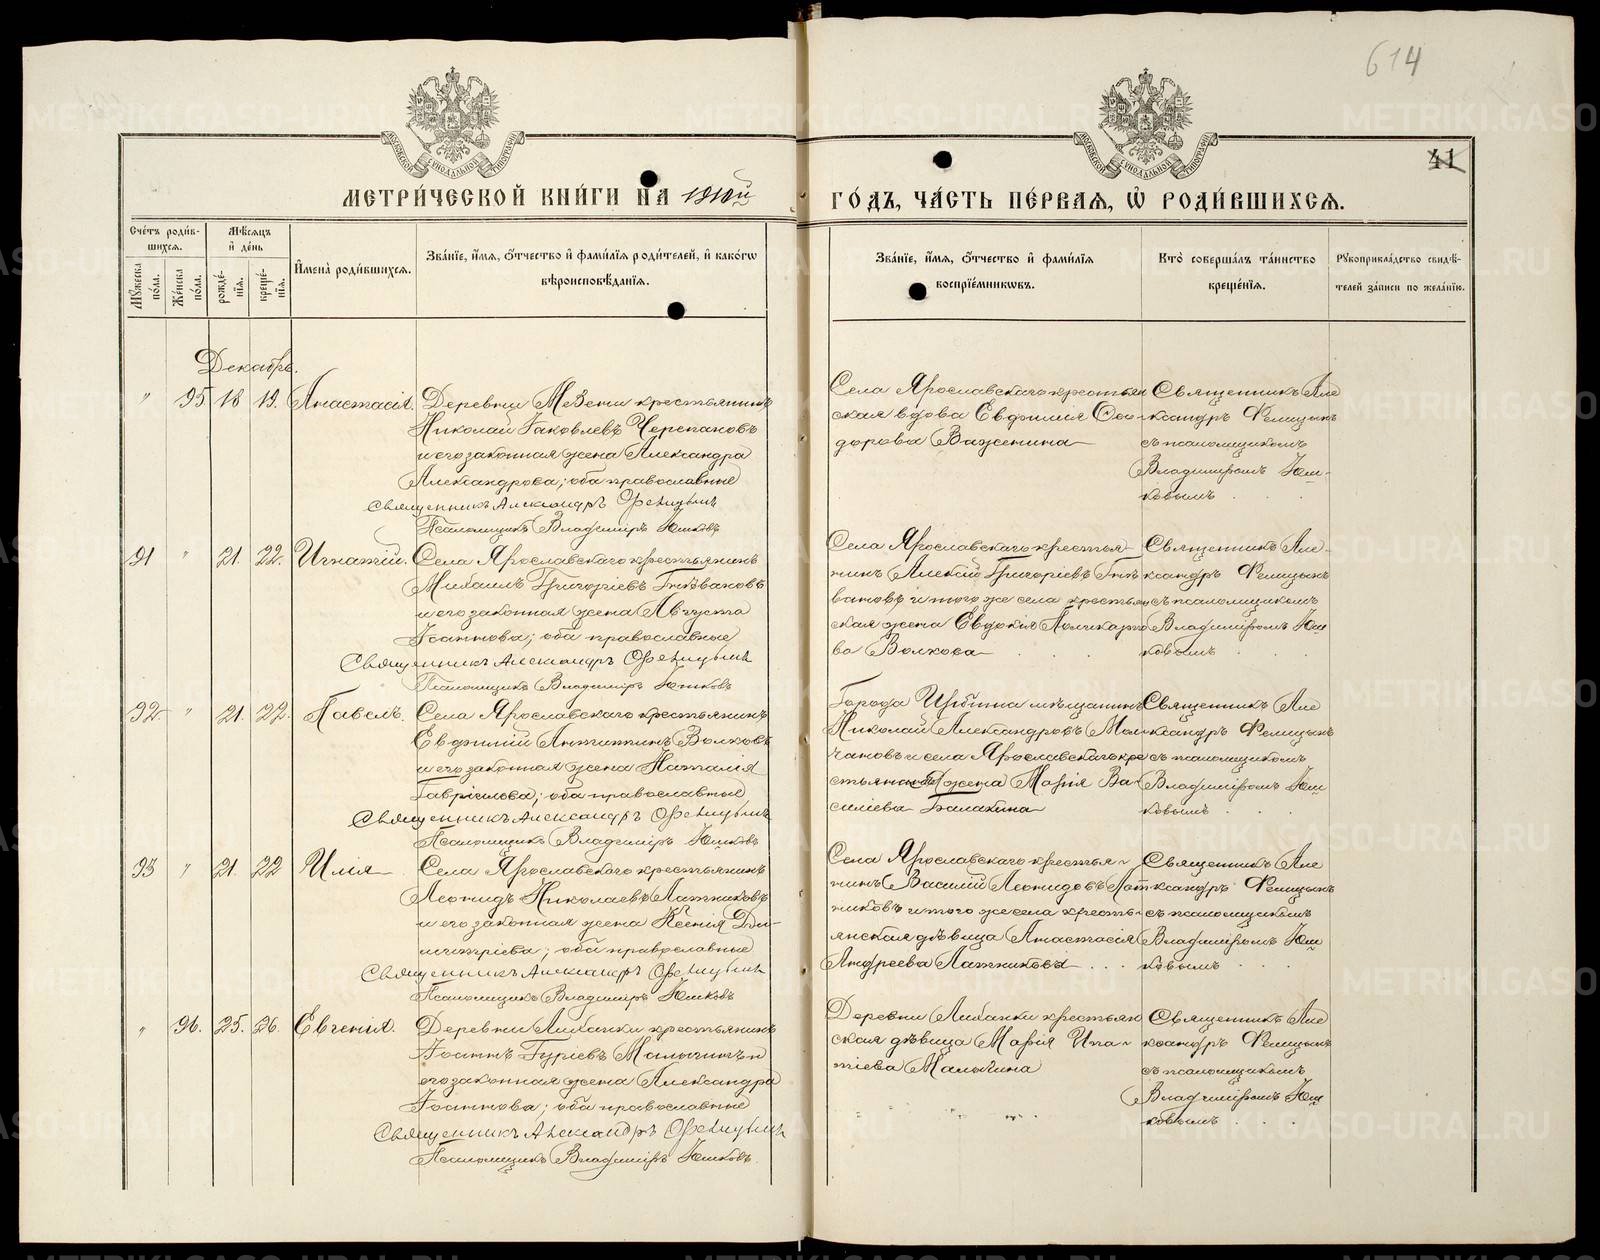 614
41
МЕТРИ́ЧЕСКОЙ КНИ́ГИ НА 1910й
ГО́ДЪ, ЧА́СТЬ ПЕ́РВАѦ, Ѡ҆ РОДИ́ВШИХСѦ.
Сче́тъ роди́в-
шихсѧ.
Мѣ́сѧцъ
и҆ де́нь
Мꙋ́жеска
по́ла.
Же́нска
по́ла.
рожде́-
нїѧ.
креще́-
нїѧ.
И҆мена̀ роди́вшихсѧ.
Зва́нїе, и҆́мѧ, ѻ҆́тчество и҆ фами́лїѧ роди́телей, и҆ како́гѡ
вѣроисповѣ́данїѧ.
Зва́нїе, и҆́мѧ, ѻ҆́тчество и҆ фами́лїѧ
воспрїе́мникѡвъ.
Кто̀ соверша́лъ та́инство
креще́нїѧ.
Рꙋкоприкла́дство свидѣ́-
телей за́писи по жела́нїю.
Декабрь.
" 95 18 19. Анастасія. Деревни Мезени крестьянинъ
Николай Іаковлевъ Черепановъ
и его законная жена Александра
Александрова; оба православные
Священникъ Александръ Фелицынъ
Псаломщикъ Владиміръ Юшковъ
Села Ярославскаго крестьян
ская вдова Евфимия Ѳео-
дорова Важенина
Священникъ Але
ксандръ Фелицынъ
съ псаломщикомъ
Владиміромъ Юш-
ковымъ
91 " 21. 22. Игнатій. Села Ярославскаго крестьянинъ
Михаилъ Григоріевъ Гнѣвановъ
и его законная жена Августа
Іоаннова; оба православные
Священникъ Александръ Фелицынъ
Псаломщикъ Владиміръ Юшковъ
Села Ярославскаго крестья-
нинъ Алексій Григоріевъ Гнѣ
вановъ и того же села крестьян
ская жена Евдокія Поликарпо
ва Волкова
Священникъ Але-
ксандръ Фелицынъ
съ псаломщикомъ
Владиміромъ Юш
ковымъ
92 " 21. 22. Павелъ. Села Ярославскаго крестьянинъ
Евфимій Антипинъ Волковъ
и его законная жена Наталія
Гавріилова; оба православные
Священникъ Александръ Фелицынъ
Псаломщикъ Владиміръ Юшковъ
Города Ирбита мѣщанинъ
Николай Александровъ Мол-
чановъ и села Ярославскаго кре
жена Марія Ва-
силіева Балакина
Священникъ Але
ксандръ Фелицынъ
съ псаломщикомъ
Владиміромъ Юш
ковымъ
93 " 21. 22 Илія Села Ярославскаго крестьянинъ
Леонидъ Николаевъ Латниковъ
и его законная жена Ксенія Ди-
митріева; оба православные
Священникъ Александръ Фелицынъ
Псаломщикъ Владиміръ Юшковъ
Села Ярославскаго крестья-
нинъ Василій Леонидовъ Лат
никовъ и того же села кресть-
янская дѣвица Анастасія
Андреева Латникова
Священникъ Але
ксандръ Фелицынъ
съ псаломщикомъ
Владиміромъ Юш
ковымъ
" 96. 25. 26. Евгенія. Деревни крестьянинъ
Іоаннъ Гуріевъ Малыгинъ и
его законная жена Александра
Іоаннова; оба православные
Священникъ Александръ Фелицынъ
Псаломщикъ Владиміръ Юшковъ.
Деревни крестьян
ская дѣвица Марія Ипа-
тіева Малыгина
Священникъ Але
ксандръ Фелицынъ
съ псаломщикомъ
Владиміромъ Юш
ковымъ
METRIKI.GASO-URAL.RU